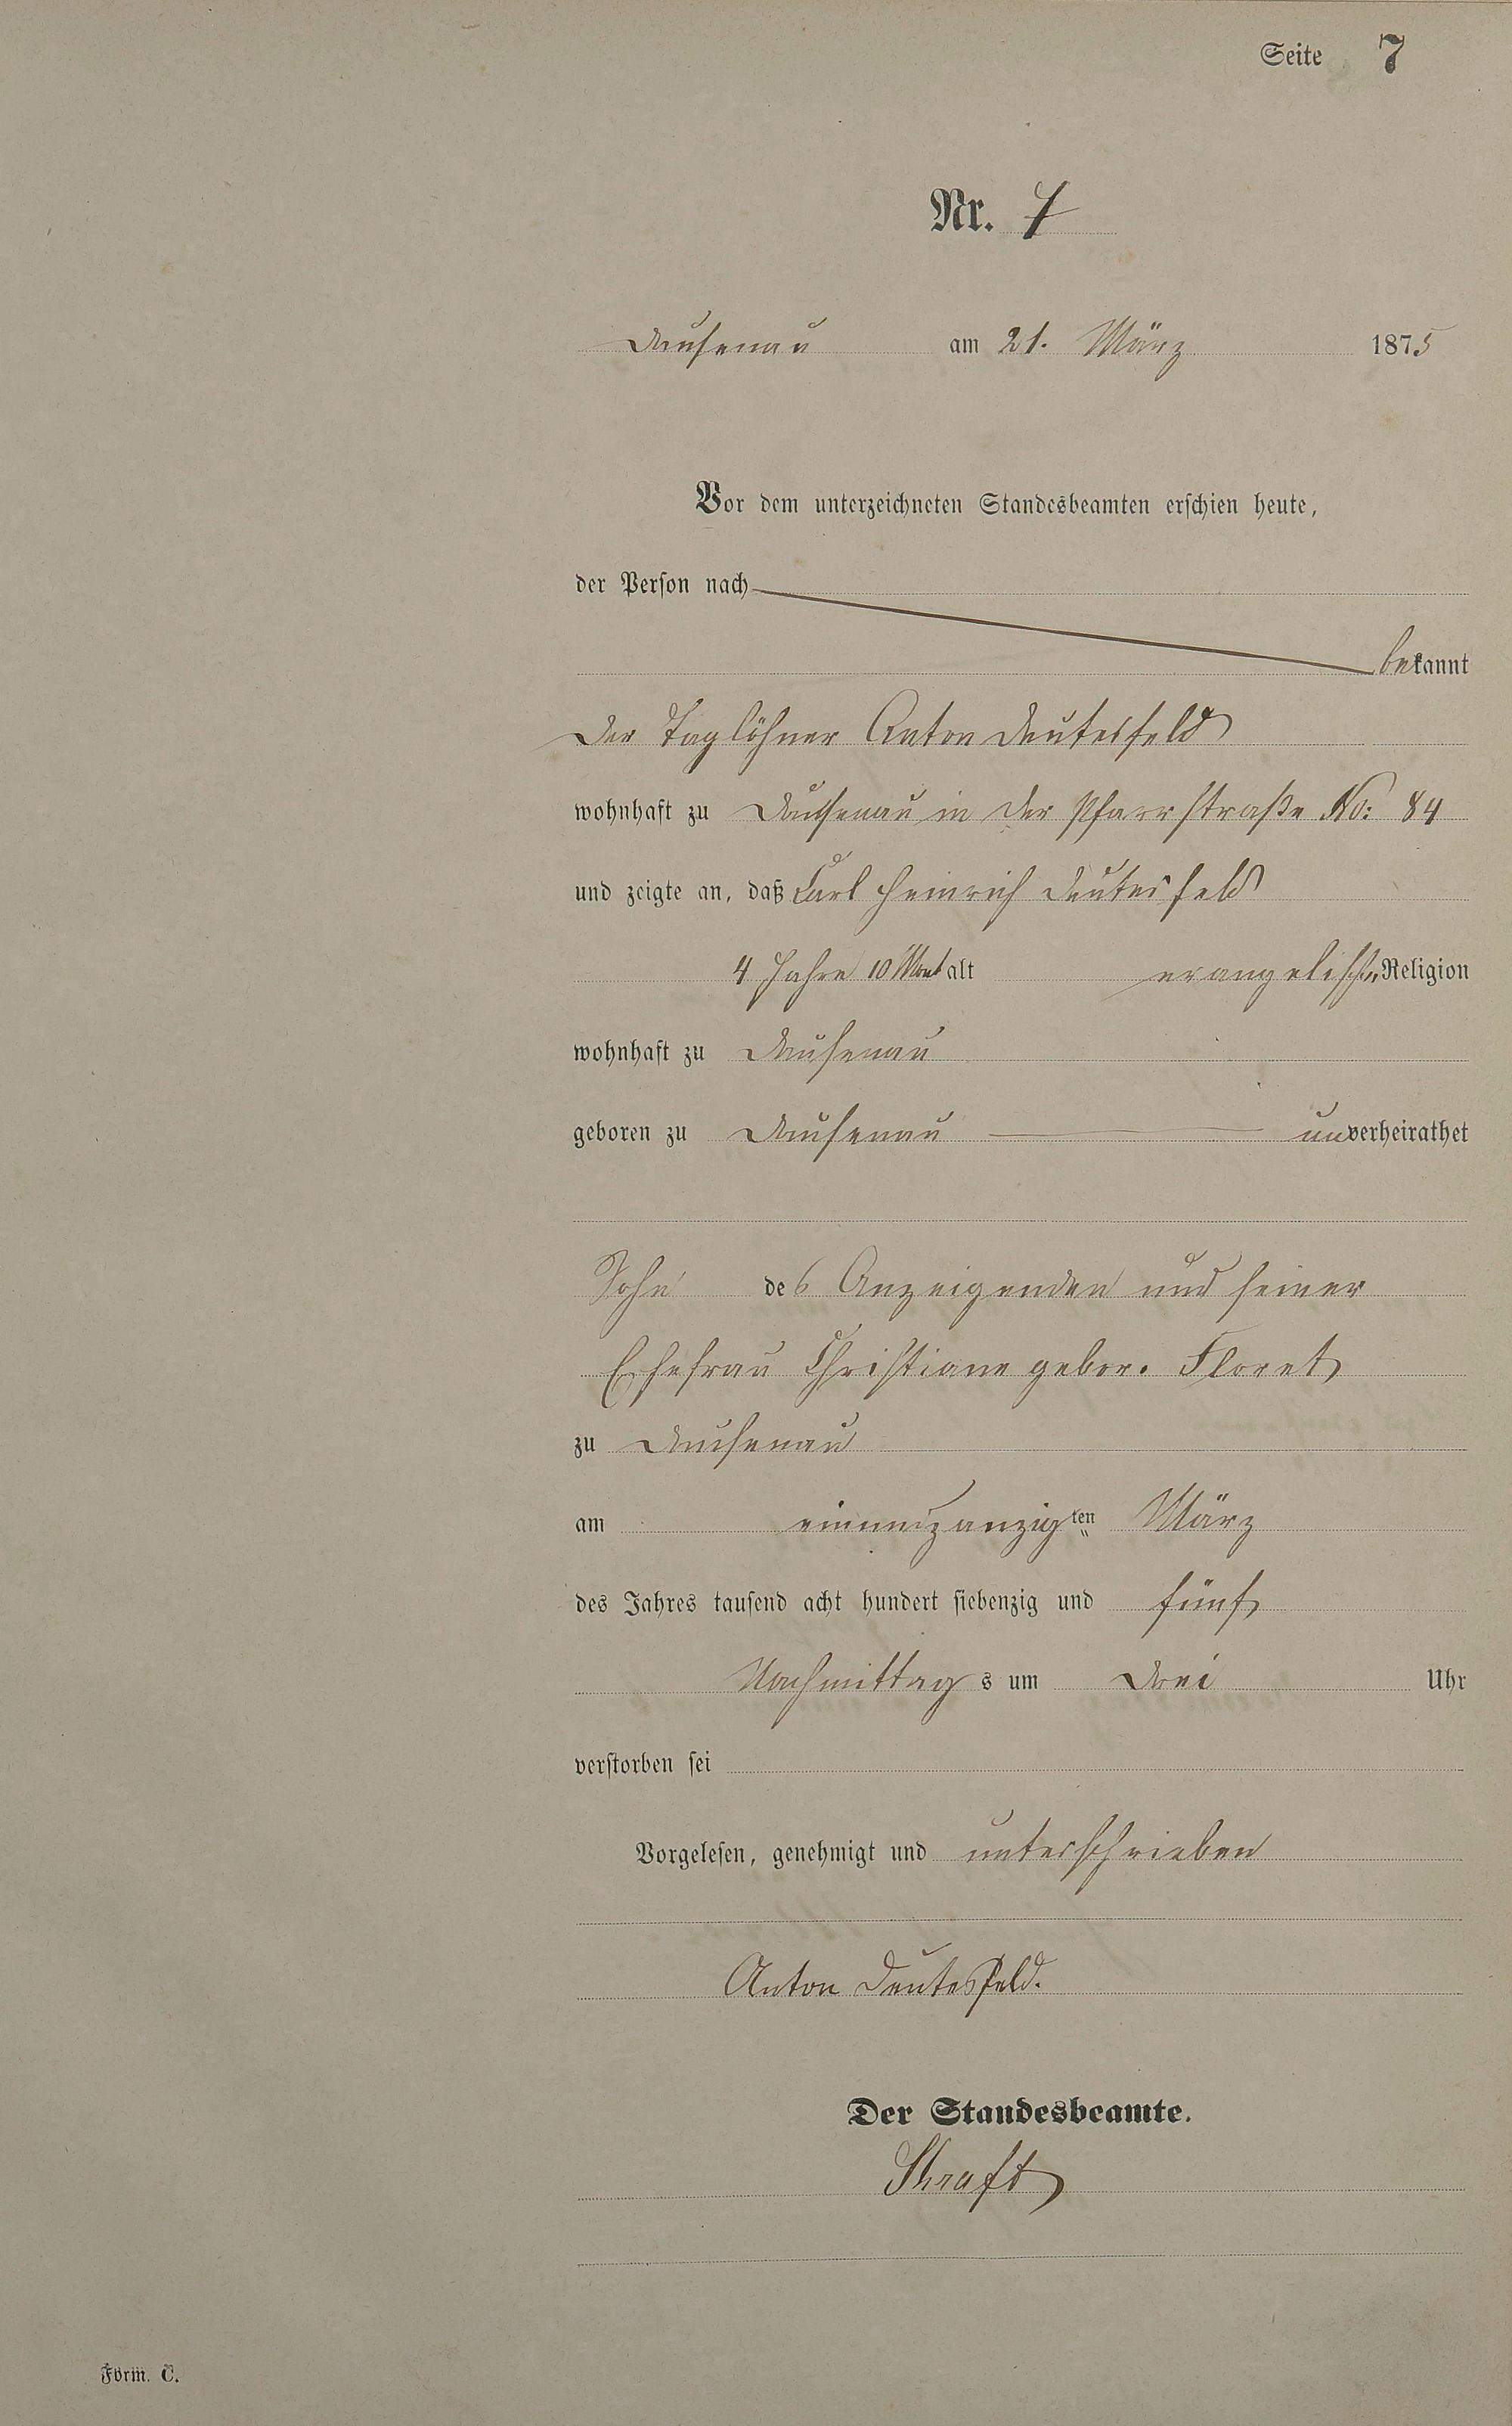 Seite 7
Nr. 7
Dausenau am 21. März 1875
Vor dem unterzeichneten Standesbeamten erschien heute,
der Person nach
bekannt
der Taglöhner Anton Deutesfeld
wohnhaft zu Dausenau in der Pfarrstraße No: 84
und zeigte an, daß Carl Heinrich Deutesfeld
4 Jahre 10 Mont alt evangelischer Religion
wohnhaft zu Dausenau
geboren zu Dausenau unverheirathet
Sohn des Anzeigenden und seiner
Ehefrau Christiane gebor. Floret
zu Dausenau
am einundzanzigten März
des Jahres tausend acht hundert siebenzig und fünf
Nachmittag s um drei Uhr
verstorben sei
Vorgelesen, genehmigt und unterschrieben
Anton Deutesfeld.
Der Standesbeamte.
Form. C.